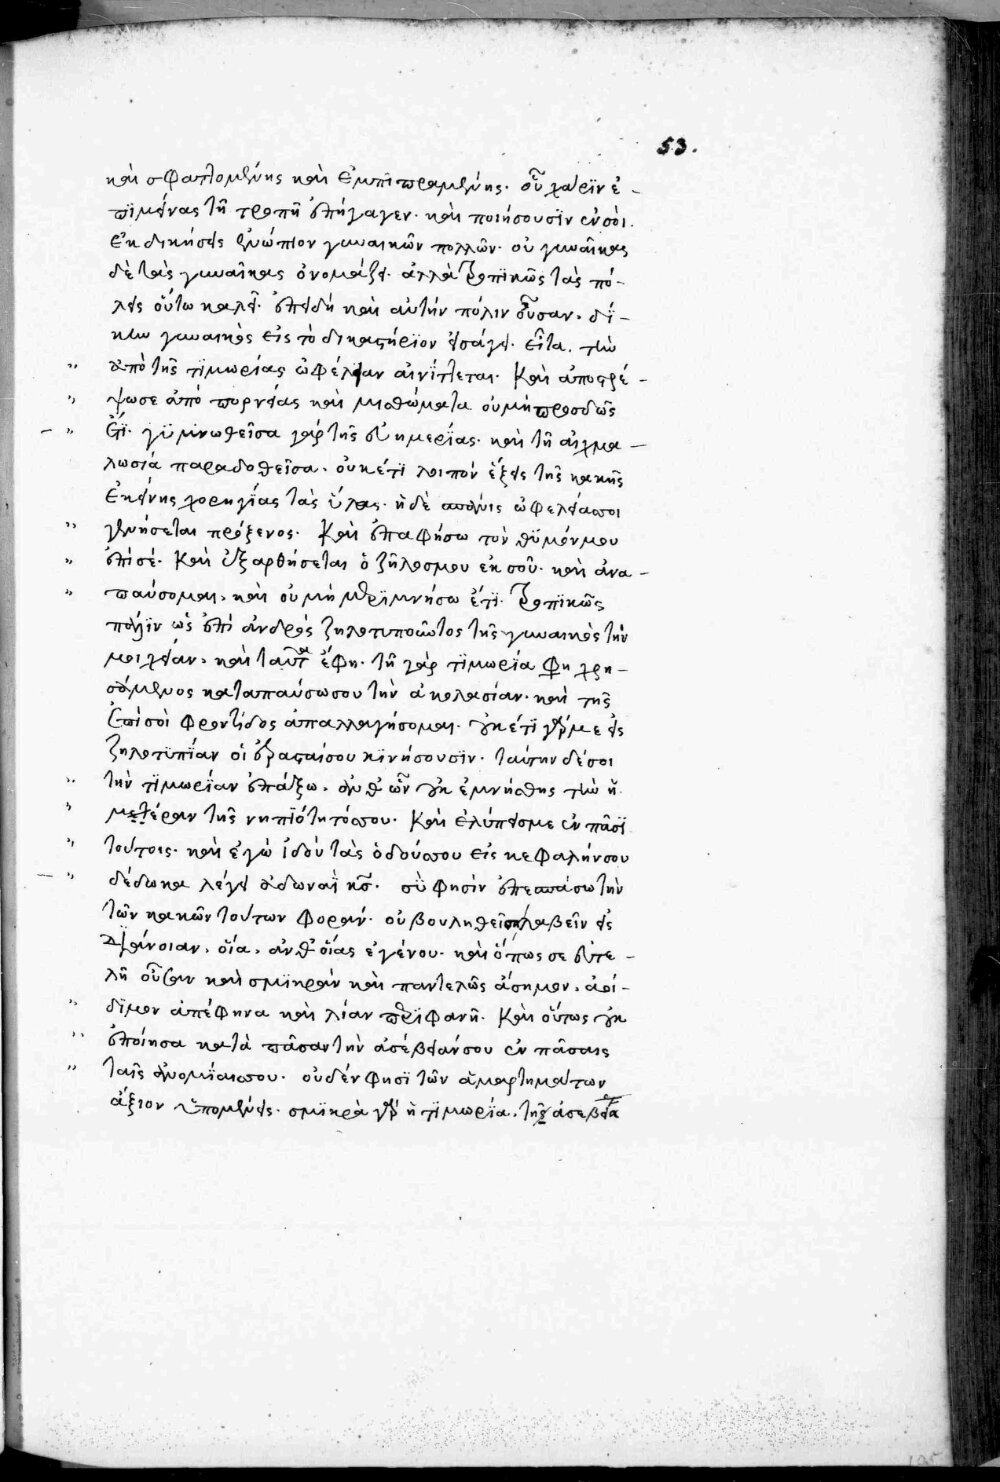 53.
καὶ σφαττομένης καὶ ἐμπιπραμένης. οὗ χάριν ἐ-
πιμείνας τῇ τροπῇ ἐπήγαγεν. καὶ ποιήσουσϊν ἐν σοὶ
ἐκδικήσεις ἐνώπιον γυναικῶν πολλῶν. οὐ γυναῖκας
δὲ τὰς γυναῖκας ὀνομάζει. ἀλλὰ τροπϊκῶς τὰς πό-
λεις οὕτω καλεῖ. ἐπειδὴ καὶ αὐτὴν πόλιν οὖσαν. δί-
κην γυναικὸς εἰς τὸ δικαστήριον εἰσάγει. εἶτα. τὴν
ἀπὸ τῆς τϊμωρίας ὠφέλειαν αἰνίττεται. Καὶ ἀποστρέ-
ψω σε ἀπὸ πορνείας καὶ μισθώματα οὐ μὴ προσδῶς
ἔτϊ. γϋμνωθεῖσα γὰρ τῆς εὐημερίας. καὶ τῇ αἰχμα-
λωσίᾳ παραδοθεῖσα. οὐκέτϊ λοιπὸν ἕξεις τῆς κακῆς
ἐκείνης χορηγίας τὰς ὕλας. ἡ δὲ ὠφελείας σοι
γενήσεται πρόξενος. Καὶ ἐπαφήσω τὸν θϋμόν μου
ἐπὶ σέ. Καὶ ἐξαρθήσεται ὁ ζῆλος μου ἐκ σοῦ. καὶ ἀνα-
παύσομαι. καὶ οὐ μὴ μεριμνήσω ἔτϊ. τροπϊκῶς
πάλϊν ὡς ἐπὶ ἀνδρὸς ζηλοτυποῦντος τῆς γυναικὸς τὴν
μοιχείαν. καὶ ταῦτα ἔφη. τῇ γὰρ τϊμωρίᾳ φη χρη-
σάμενος καταπαύσω σου τὴν ἀκολασίαν. καὶ τῆς
ἐπὶ σοὶ φροντίδος ἀπαλλαγήσομαι. οὐκέτϊ γάρ με εἰς
ζηλοτϋπίαν οἱ ἐρασταί σου κϊνήσουσϊν. ταύτην δέ σοι
τὴν τϊμωρίαν ἐπάξω. ἀνθ ὧν οὐκ ἐμνήσθης τὴν ἡ
μετέραν τῆς νηπϊότητός σου. Καὶ ἐλύπεις με ἐν πᾶσϊ
τούτοις. καὶ ἐγὼ ἰδοὺ τὰς ὁδούς σου εἰς κεφαλήν σου
δέδωκα λέγει ἀδωναῒ κς. σὺ φησὶν ἐπεσπάσω τὴν
τῶν κακῶν τούτων φοράν. οὐ βουληθεῖσα λαβεῖν εἰς
διάνοιαν. οἵα. ἀνθ οἵας ἐγένου. καὶ ὅπως σε εὐτε-
λῆ οὖσαν καὶ σμϊκρὰν καὶ παντελῶς ἄσημον. ἀοί-
δϊμον ἀπέφηνα καὶ λίαν περϊφανῆ. Καὶ οὕτως οὐκ
ἐποίησα κατὰ πᾶσαν τὴν ἀσέβειάν σου ἐν πάσαις
ταῖς ἀνομίαις σου. οὐδέν φησϊ τῶν ἁμαρτημάτων
ἄξιον ὑπομένεις. σμϊκρὰ γὰρ ἡ τϊμωρία. τῆς ἀσεβεία